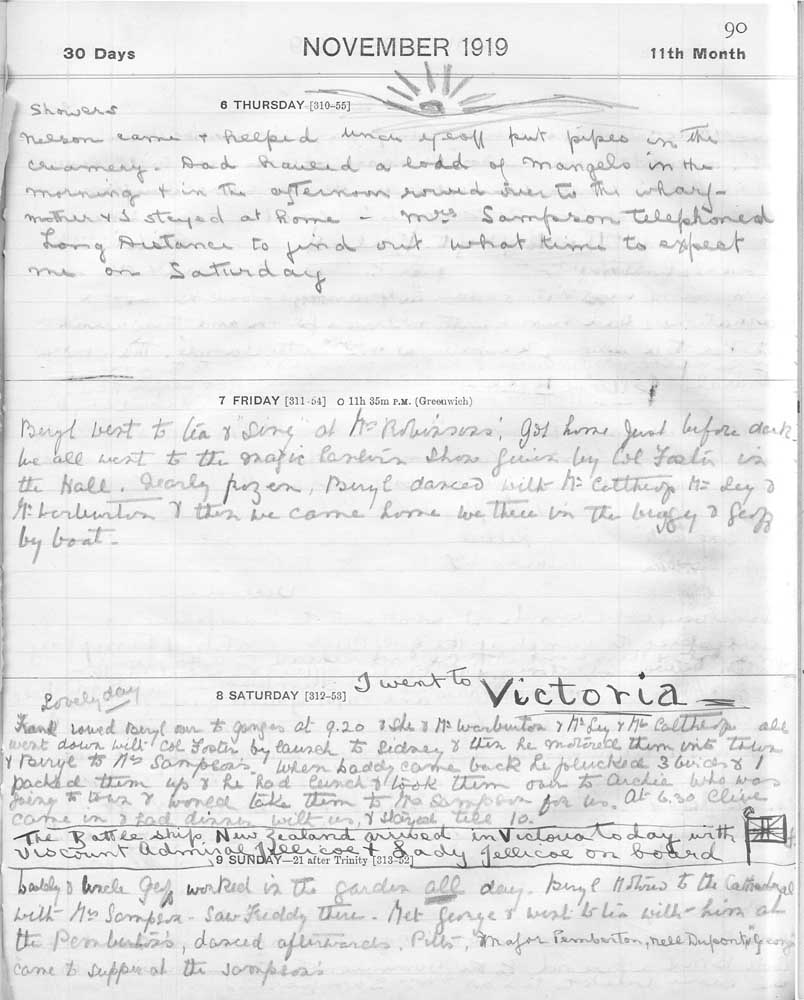 90
30 Days NOVEMBER 1919 11th Month
Showers 6 THURSDAY [310-55]
Nelson came & helped Uncle Geoff put pipes in the
creamery. Dad hauled a lodd of Mangels in the
morning & in the afternoon rowed over to the wharf-
Mother & I stayed at home - Mrs Sampson telephoned
Long Distance to find out what time to expect
me on Saturday
7 FRIDAY [311-54] O 11h 35m P.M. (Greenwich)
Beryl went to tea & "Sing" at Mrs Robinsons', got home just before dark.
We all went to the magic lantern show given by Col Foster in
the Hall. Nearly frozen, Beryl danced with Mr Calthrop Mr Ley &
Mr Warburton & then we came home we three in the buggy & Geoff
by boat-
Lovely day 8 SATURDAY [312-53] I went to Victoria
Frank rowed Beryl over to Ganges at 9.20 & She & Mr Warburton & Mr Ley & Mr Calthrop all
went down with Col Foster by launch to Sidney & then he motored them into town
& Beryl to Mrs Sampson's. When Daddy came back he plucked 3 birds & I
packed them up & he had lunch & took them over to Archie who was
going to town & would take them to Mrs Sampson for us. At 6.30 Clive
came in & had dinner with us, & stayed till 10.
The Battle ship New Zealand arrived in Victoria today with
Viscount Admiral Jellicoe & Lady Jellicoe on board
9 SUNDAY—21 after Trinity [313-52]
Daddy & Uncle Geoff worked in the garden all day. Beryl Motored to the Cathedral
with Mrs Sampson - Saw Freddy there. Met George & went to tea with him at
the Pemberton's, danced afterwards. Pitts, Major Pemberton, Nell Dupont & George
came to supper at the Sampson's